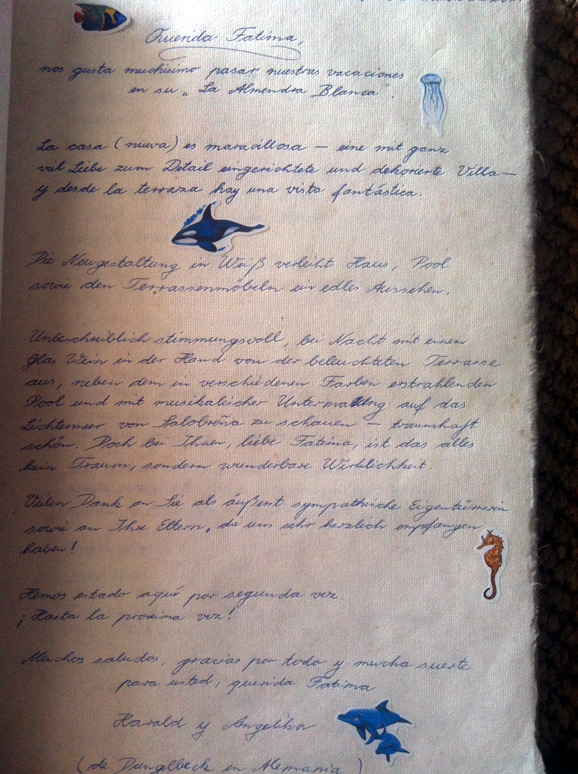 Querida Fatima,
nos gusta muchísimo pasar nuestras vacaciones
en su „La Almendra Blanca".
La casa (nueva) es maravillosa – eine mit ganz
viel Liebe zum Detail eingerichtete und dekorierte Villa –
y desde la terraza hay una vista fantástica.
Die Neugestaltung in Weiß verleiht Haus, Pool
sowie den Terrassenmöbeln ein edles Aussehen.
Unbeschreiblich stimmungsvoll, bei Nacht mit einem
Glas Wein in der Hand von der beleuchteten Terrasse
aus, neben dem in verschiedenen Farben erstrahlenden
Pool und mit musikalischer Untermalung auf das
Lichtermeer von Salobreña zu schauen – traumhaft
schön. Doch bei Ihnen, liebe Fatima, ist das alles
kein Traum, sondern wunderbare Wirklichkeit.
Vielen Dank an Sie als äußerst sympathische Eigentümerin
sowie an Ihre Eltern, die uns sehr herzlich empfangen
haben!
Hemos estado aquí por segunda vez.
¡Hasta la proxima vez!
Muchos saludos, gracias por todo y mucha suerte
para usted, querida Fatima
Harald y Angelika
(de Dungelbeck en Alemania)